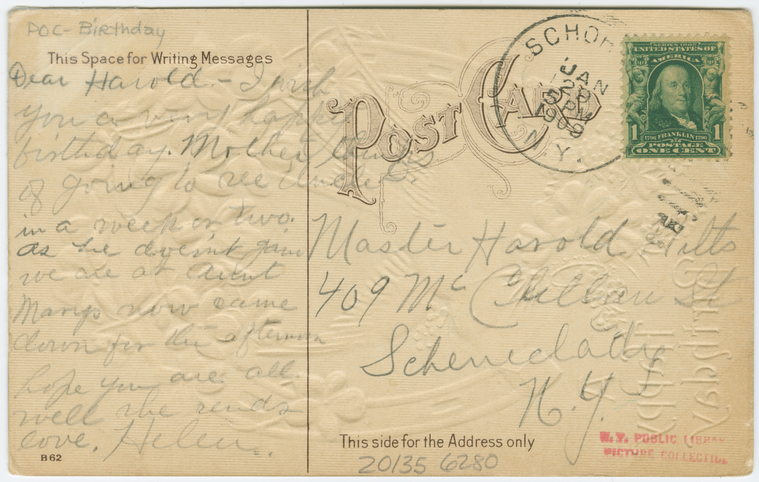 POC - Birthday
This Space for Writing Messages
Dear Harold. - I wish
you a very happy
birthday. Mother
of going to see
in a week or two.
as he doesn't gain
we are at Aunt
Marys now came
down for the afternoon
hope you are all
well she sends
love. Helen.
B 62
POST CARD
SCHO
JAN
PM
1909
N.Y.
SERIES 1902
UNITED STATES OF
AMERICA
1 1706 FRANKLIN 1790 1
POSTAGE
ONE CENT
Master Harold
409 Mc Clellan St
Schenectady
N.Y.
This side for the Address only
20135 6280
N.Y. PUBLIC LIBRARY
PICTURE COLLECTION
Birthday